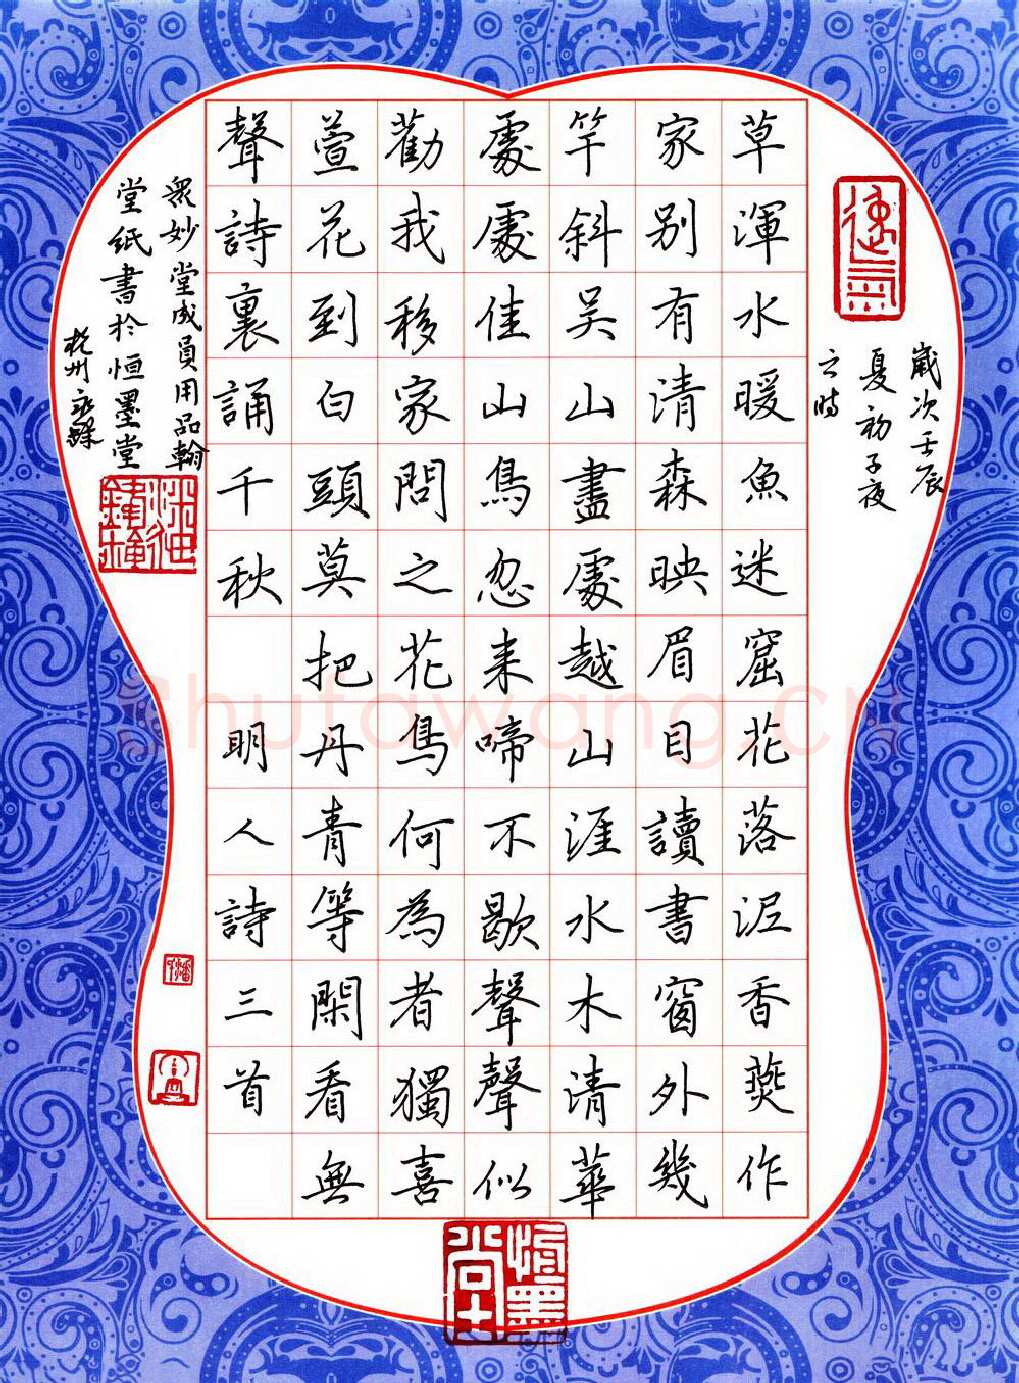 歲次壬辰
夏初子夜
之時
草渾水暖魚迷窟花落泥香燕作
家别有清森映眉目讀書窗外幾
竿斜吴山盡處越山涯水木清華
處處佳山鳥忽来啼不歇聲聲似
勸我移家問之花鳥何為者獨喜
萱花到白頭莫把丹青等閑看無
聲詩裏誦千秋 明人詩三首
衆妙堂成員用品翰
堂紙書於恒墨堂
杭州
恒墨堂
Shufawang.cn